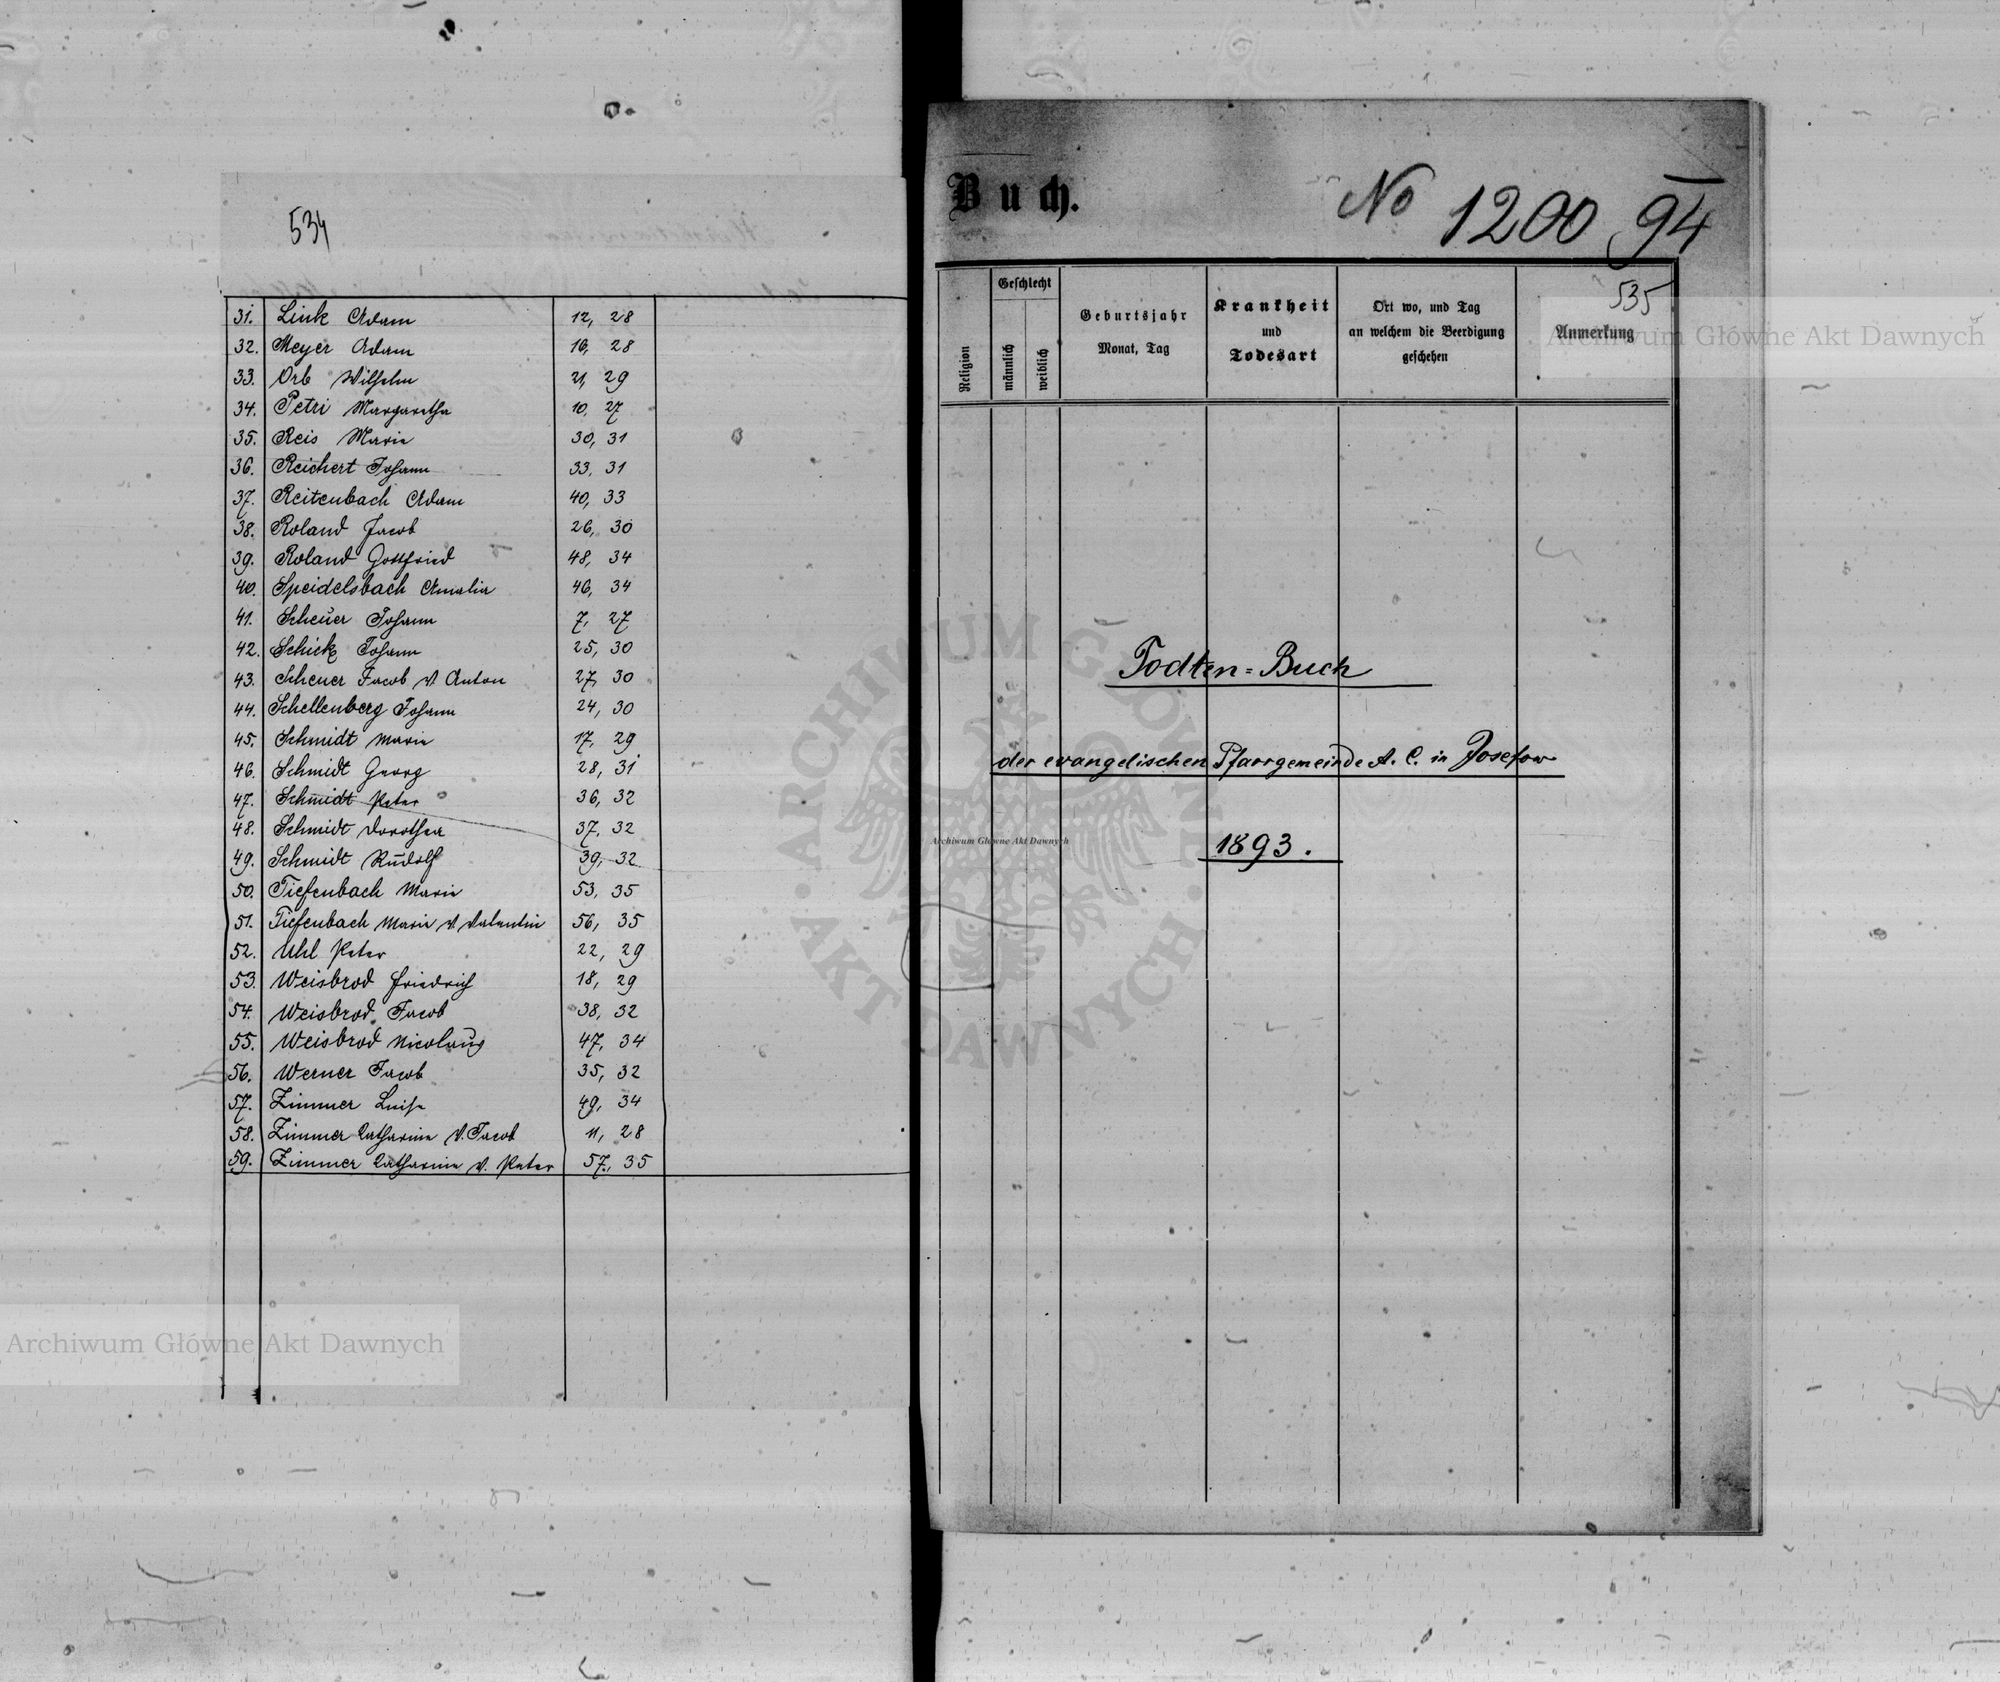 534
31. Link Adam 12, 28
32. Meyer Adam 16, 28
33. Orb Wilhelm 21, 29
34. Petri Margaretha 10, 27
35. Reis Marie 30, 31
36. Reichert Johann 33, 31
37. Reitenbach Adam 40, 33
38. Roland Jacob 26, 30
39. Roland Gottfried 48, 34
40. Speidelsbach Amalia 46, 34
41. Scheuer Johann 7, 27
42. Schick Johann 25, 30
43. Scheuer Jacob v. Anton 27, 30
44. Schellenberg Johann 24, 30
45. Schmidt Marie 17, 29
46. Schmidt Georg 28, 31
47. Schmidt Peter 36, 32
48. Schmidt Dorothea 37, 32
49. Schmidt Rudolf 39, 32
50. Tiefenbach Marie 53, 35
51. Tiefenbach Marie v. Valentin 56, 35
52. Uhl Peter 22, 29
53. Weisbrod Friedrich 18, 29
54. Weisbrod Jacob 38, 32
55. Weisbrod Nicolaus 47, 34
56. Werner Jacob 35, 32
57. Zimmer Luise 49, 34
58. Zimmer Catharina v. Jacob 11, 28
59. Zimmer Catharina v. Peter 57, 35
Archiwum Główne Akt Dawnych
Buch.
No 1200 94
535
Religion
Geschlecht
männlich
weiblich
Geburtsjahr
Monat, Tag
Krankheit
und
Todesart
Ort wo, und Tag
an welchem die Beerdigung
geschehen
Anmerkung
Archiwum Główne Akt Dawnych
Todten=Buch
der evangelischen Pfarrgemeinde A. C. in Josefow
1893.
Archiwum Główne Akt Dawnych
ARCHIWUM GŁÓWNE · AKT DAWNYCH ·